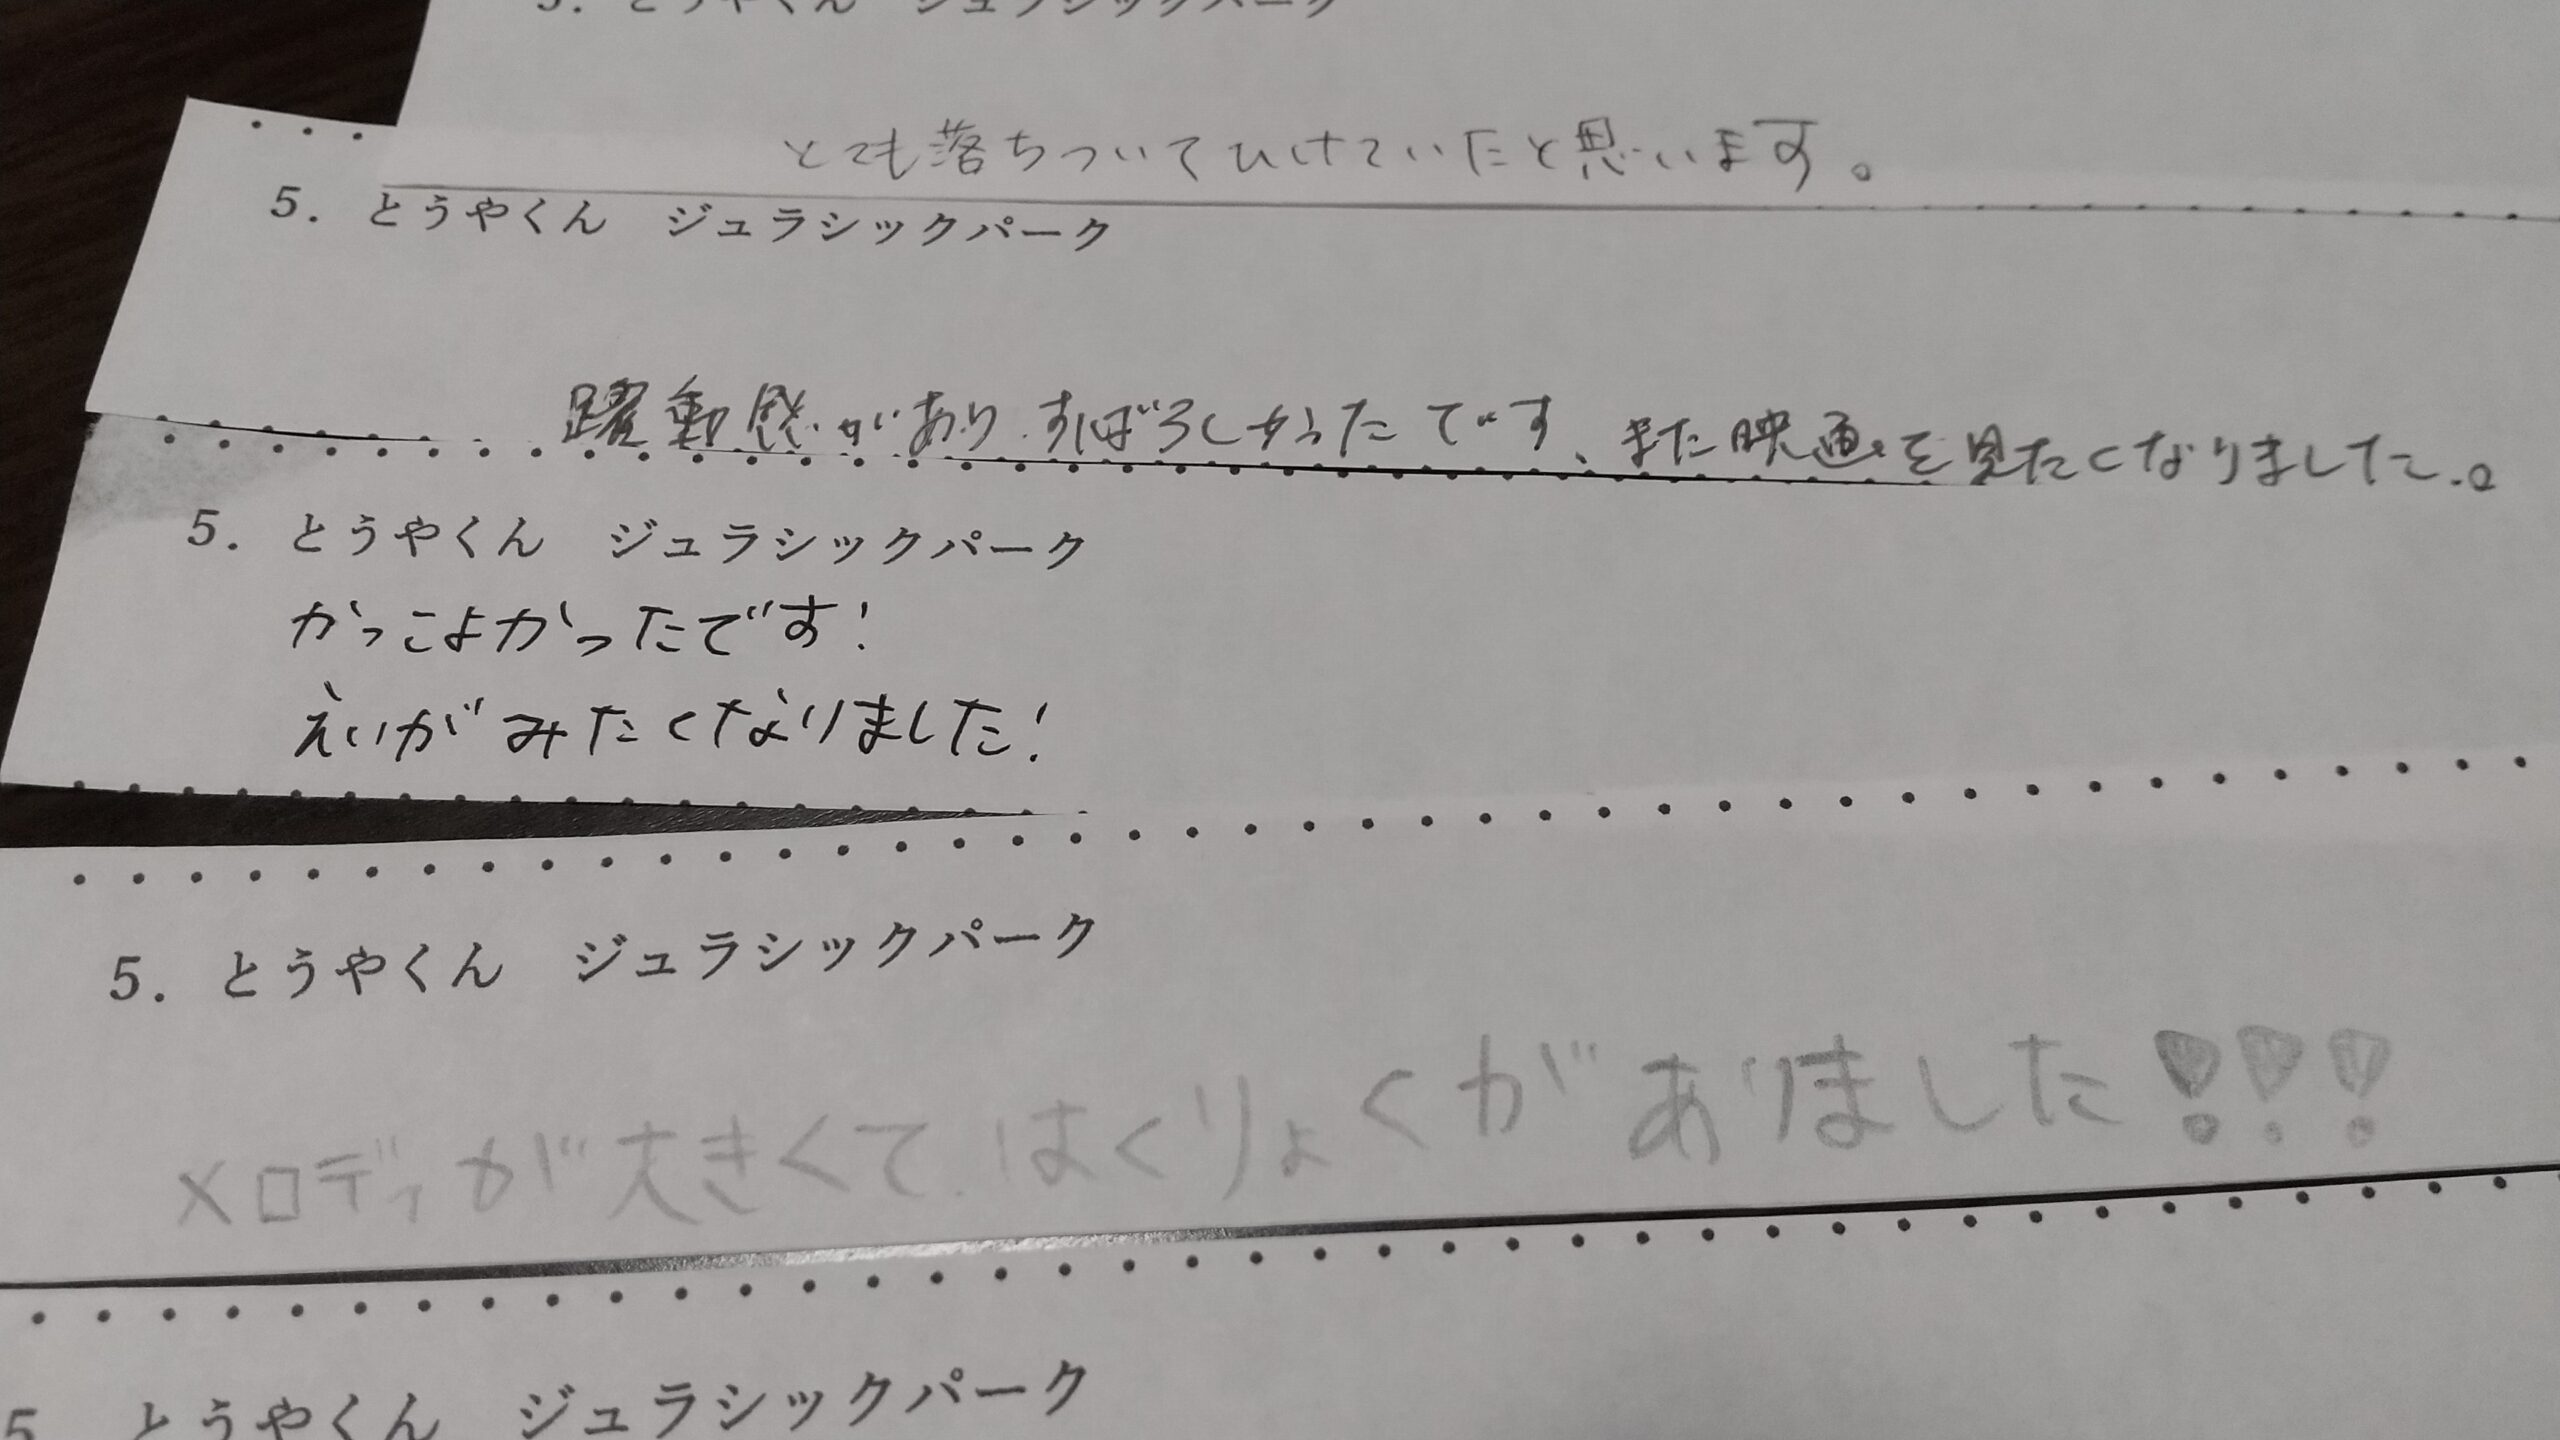 5. とうやくん ジュラシックパーク
とても落ちついてひけていたと思います。
5. とうやくん ジュラシックパーク
躍動感があり、すばらしかったです、また映画を見たくなりました。
5. とうやくん ジュラシックパーク
かっこよかったです!
えいがみたくなりました!
5. とうやくん ジュラシックパーク
メロディが大きくて、はくりょくがありました!!!
5. とうやくん ジュラシックパーク